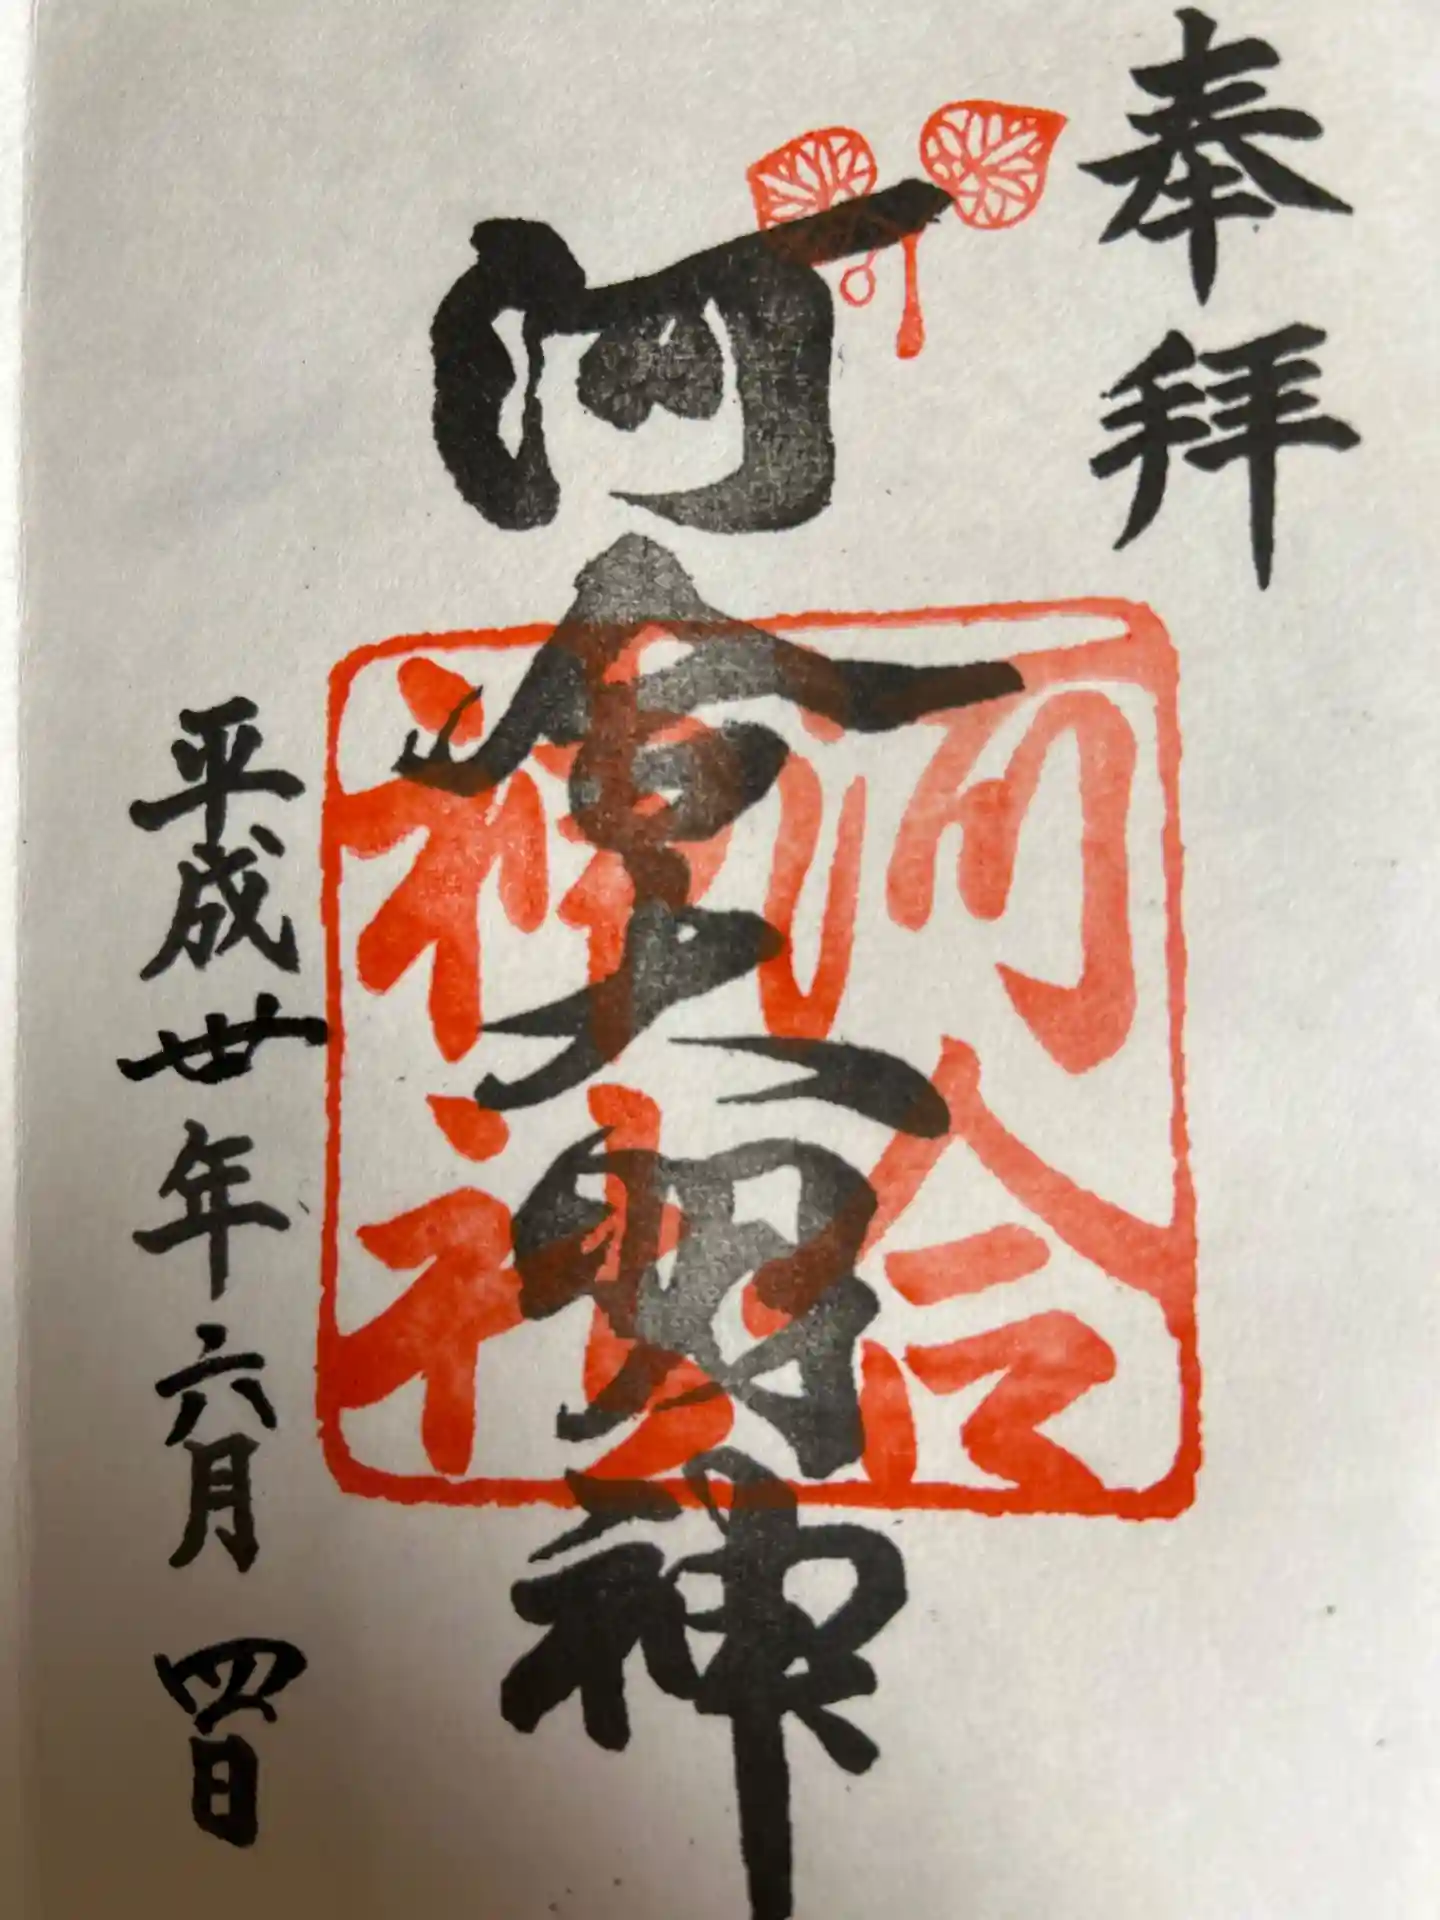 奉拝
河合大明神
河合
神社
平成丗年六月四日